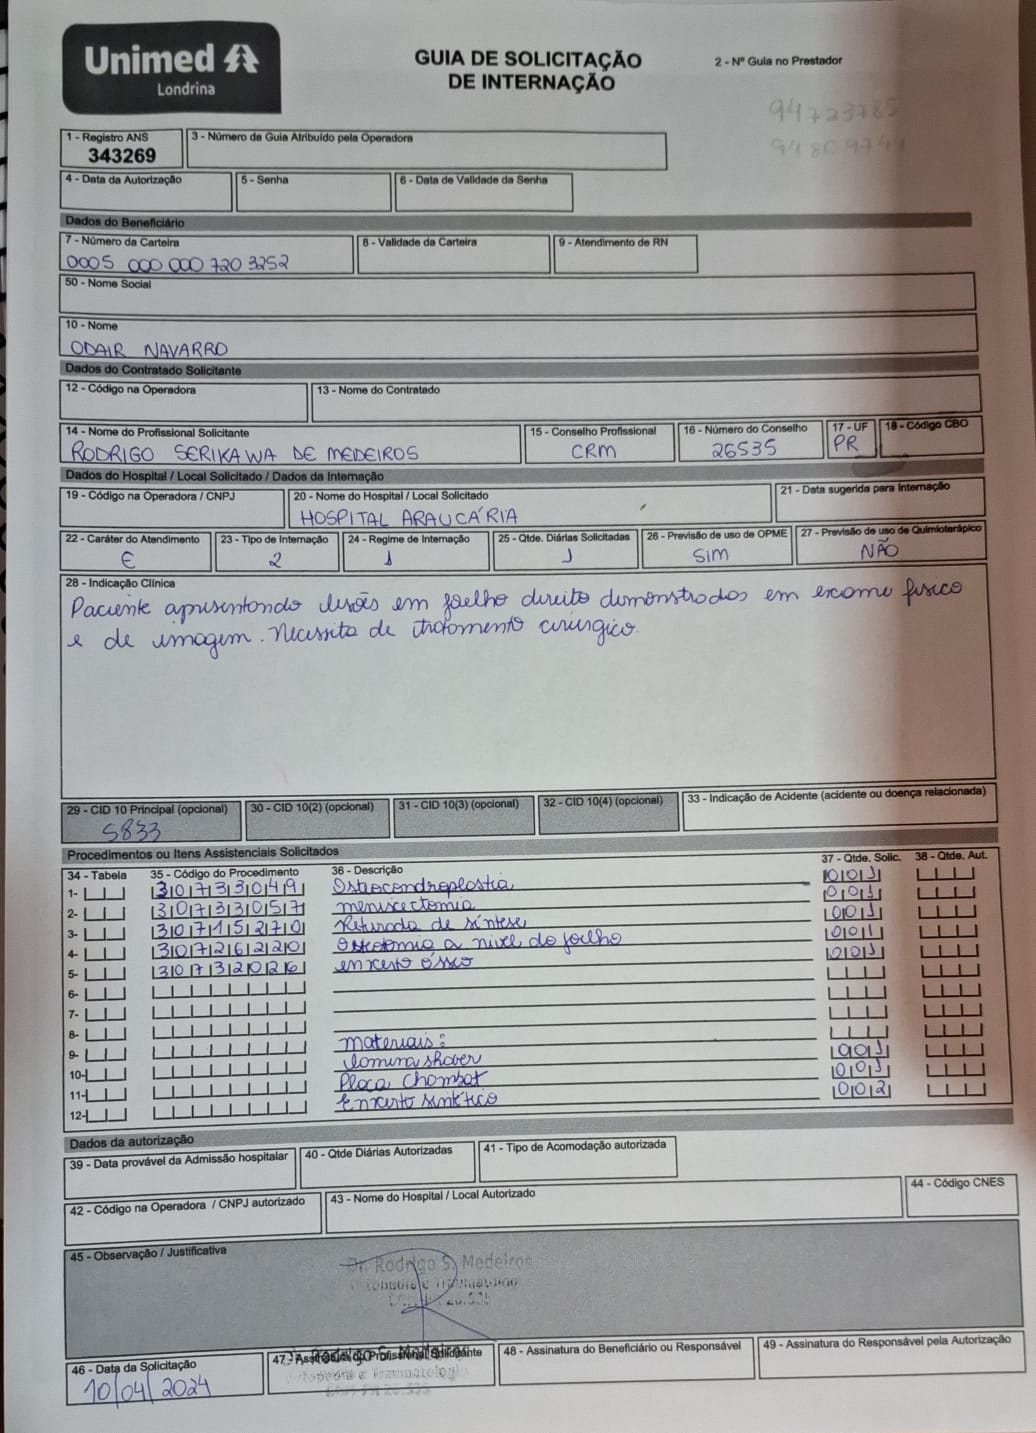 Unimed
Londrina
GUIA DE SOLICITAÇÃO
DE INTERNAÇÃO
2 - Nº Guia no Prestador
94723785
94809744
1 - Registro ANS
343269
3 - Número da Guia Atribuído pela Operadora
4 - Data da Autorização
5 - Senha
6 - Data de Validade da Senha
Dados do Beneficiário
7 - Número da Carteira
0005 000 000 720 3252
8 - Validade da Carteira
9 - Atendimento de RN
50 - Nome Social
10 - Nome
ODAIR NAVARRO
Dados do Contratado Solicitante
12 - Código na Operadora
13 - Nome do Contratado
14 - Nome do Profissional Solicitante
RODRIGO SERIKAWA DE MEDEIROS
15 - Conselho Profissional
CRM
16 - Número do Conselho
26535
17 - UF
PR
18 - Código CBO
Dados do Hospital / Local Solicitado / Dados da Internação
19 - Código na Operadora / CNPJ
20 - Nome do Hospital / Local Solicitado
HOSPITAL ARAUCÁRIA
21 - Data sugerida para Internação
22 - Caráter do Atendimento
E
23 - Tipo de Internação
2
24 - Regime de Internação
1
25 - Qtde. Diárias Solicitadas
1
26 - Previsão de uso de OPME
SIM
27 - Previsão de uso de Quimioterápico
NÃO
28 - Indicação Clínica
Paciente apresentando lesões em joelho direito demonstrados em exame físico
e de imagem. Necessita de tratamento cirúrgico.
29 - CID 10 Principal (opcional)
S833
30 - CID 10(2) (opcional)
31 - CID 10(3) (opcional)
32 - CID 10(4) (opcional)
33 - Indicação de Acidente (acidente ou doença relacionada)
Procedimentos ou Itens Assistenciais Solicitados
34 - Tabela 35 - Código do Procedimento 36 - Descrição 37 - Qtde. Solic. 38 - Qtde. Aut.
1- 30733049 Osteocondroplastia 001
2- 30733057 meniscectomia 001
3- 30715270 Retirada de síntese 001
4- 30726220 Osteotomia a nível do joelho 001
5- 30732026 enxerto ósseo 001
6-
7-
8-
9- materiais:
10- lamina shaver 001
11- Placa Chambat 001
12- Enxerto sintético 002
Dados da autorização
39 - Data provável da Admissão hospitalar
40 - Qtde Diárias Autorizadas
41 - Tipo de Acomodação autorizada
42 - Código na Operadora / CNPJ autorizado
43 - Nome do Hospital / Local Autorizado
44 - Código CNES
45 - Observação / Justificativa
Dr. Rodrigo S. Medeiros
46 - Data da Solicitação
10/04/2024
47 - Assinatura do Profissional Solicitante
Ortopedia e Traumatologia
48 - Assinatura do Beneficiário ou Responsável
49 - Assinatura do Responsável pela Autorização